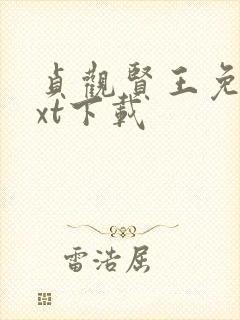 貞觀賢王免
xt下載
雷浩居